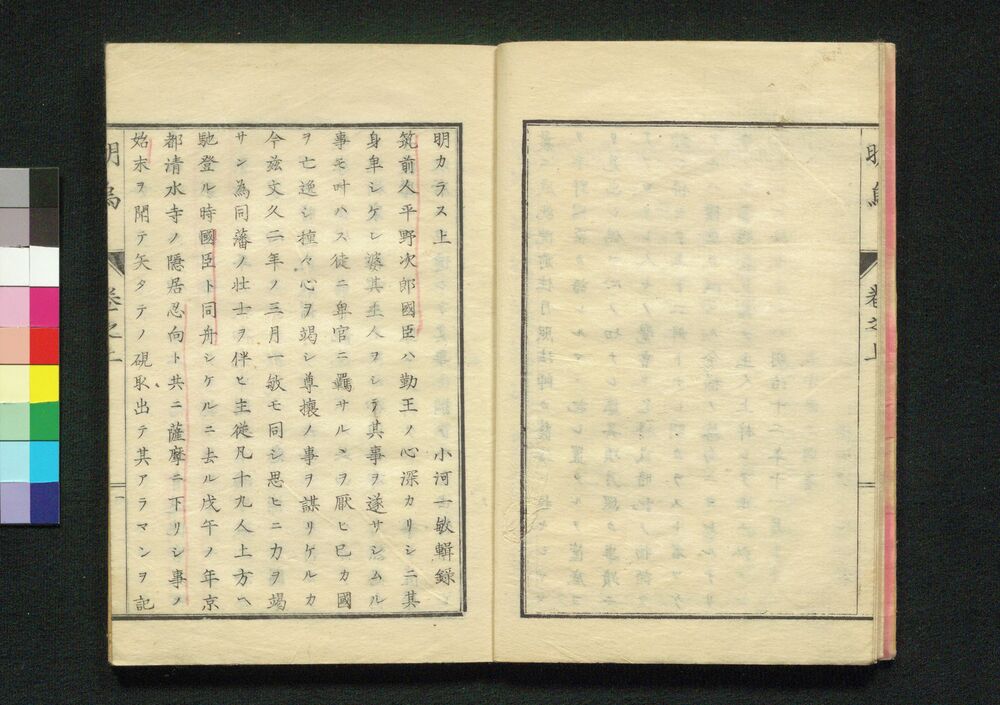 明烏　巻之上
明カラス上　小河一敏輯録
筑前人平野次郎國臣ハ勤王ノ心深カリシニ其
身卑シケレ婆其主人ヲシテ其事ヲ遂サシムル
事モ叶ハス徒ニ卑官ニ羈サルヽヲ厭ヒ已カ國
ヲ亡逸シ種々心ヲ竭シ尊攘ノ事ヲ謀リケルカ
今茲文久二年ノ三月一敏モ同シ思ヒニ力ヲ竭
サン為同藩ノ壮士ヲ伴ヒ主従凡十九人上方ヘ
馳登ル時國臣ト同舟シケルニ去ル戊午ノ年京
都清水寺ノ隠居忍向ト共ニ薩摩ニ下リシ事ノ
始末ヲ聞テ矢タテノ硯取出テ其アラマシヲ記
明烏　巻之上　一